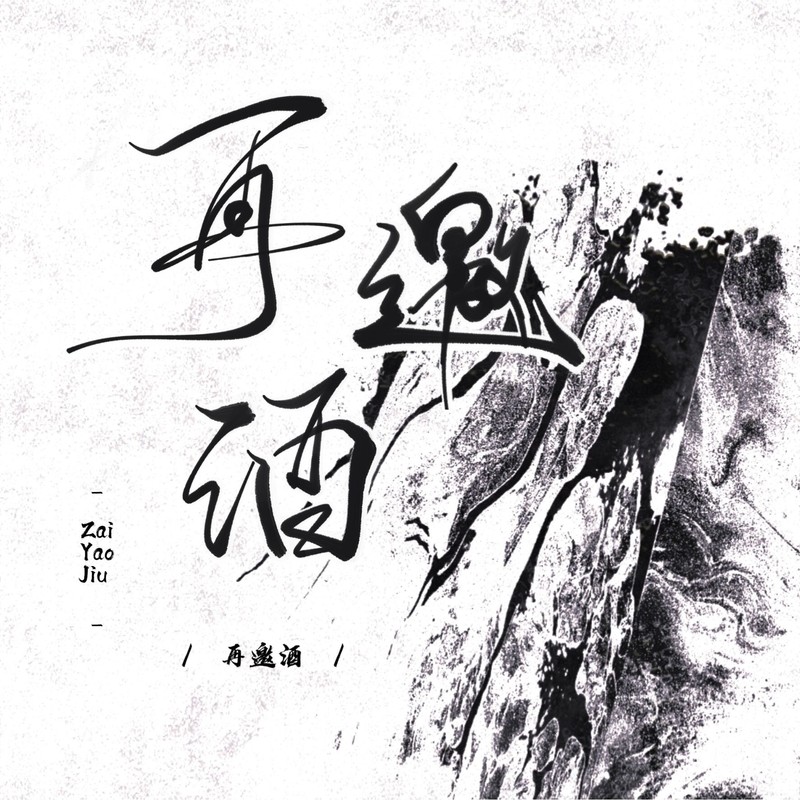 再邀
酒
Zai
Yao
Jiu
/ 再邀酒 /